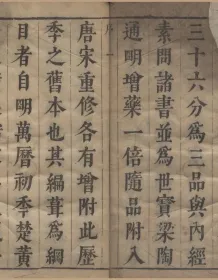 三十六分為三品與內經
素問諸書並為世寶梁陶
通明增藥一倍隨品附入
唐宋重修各有增附此歷
季之舊本也其編葺為綱
目者自明萬曆初季楚黃